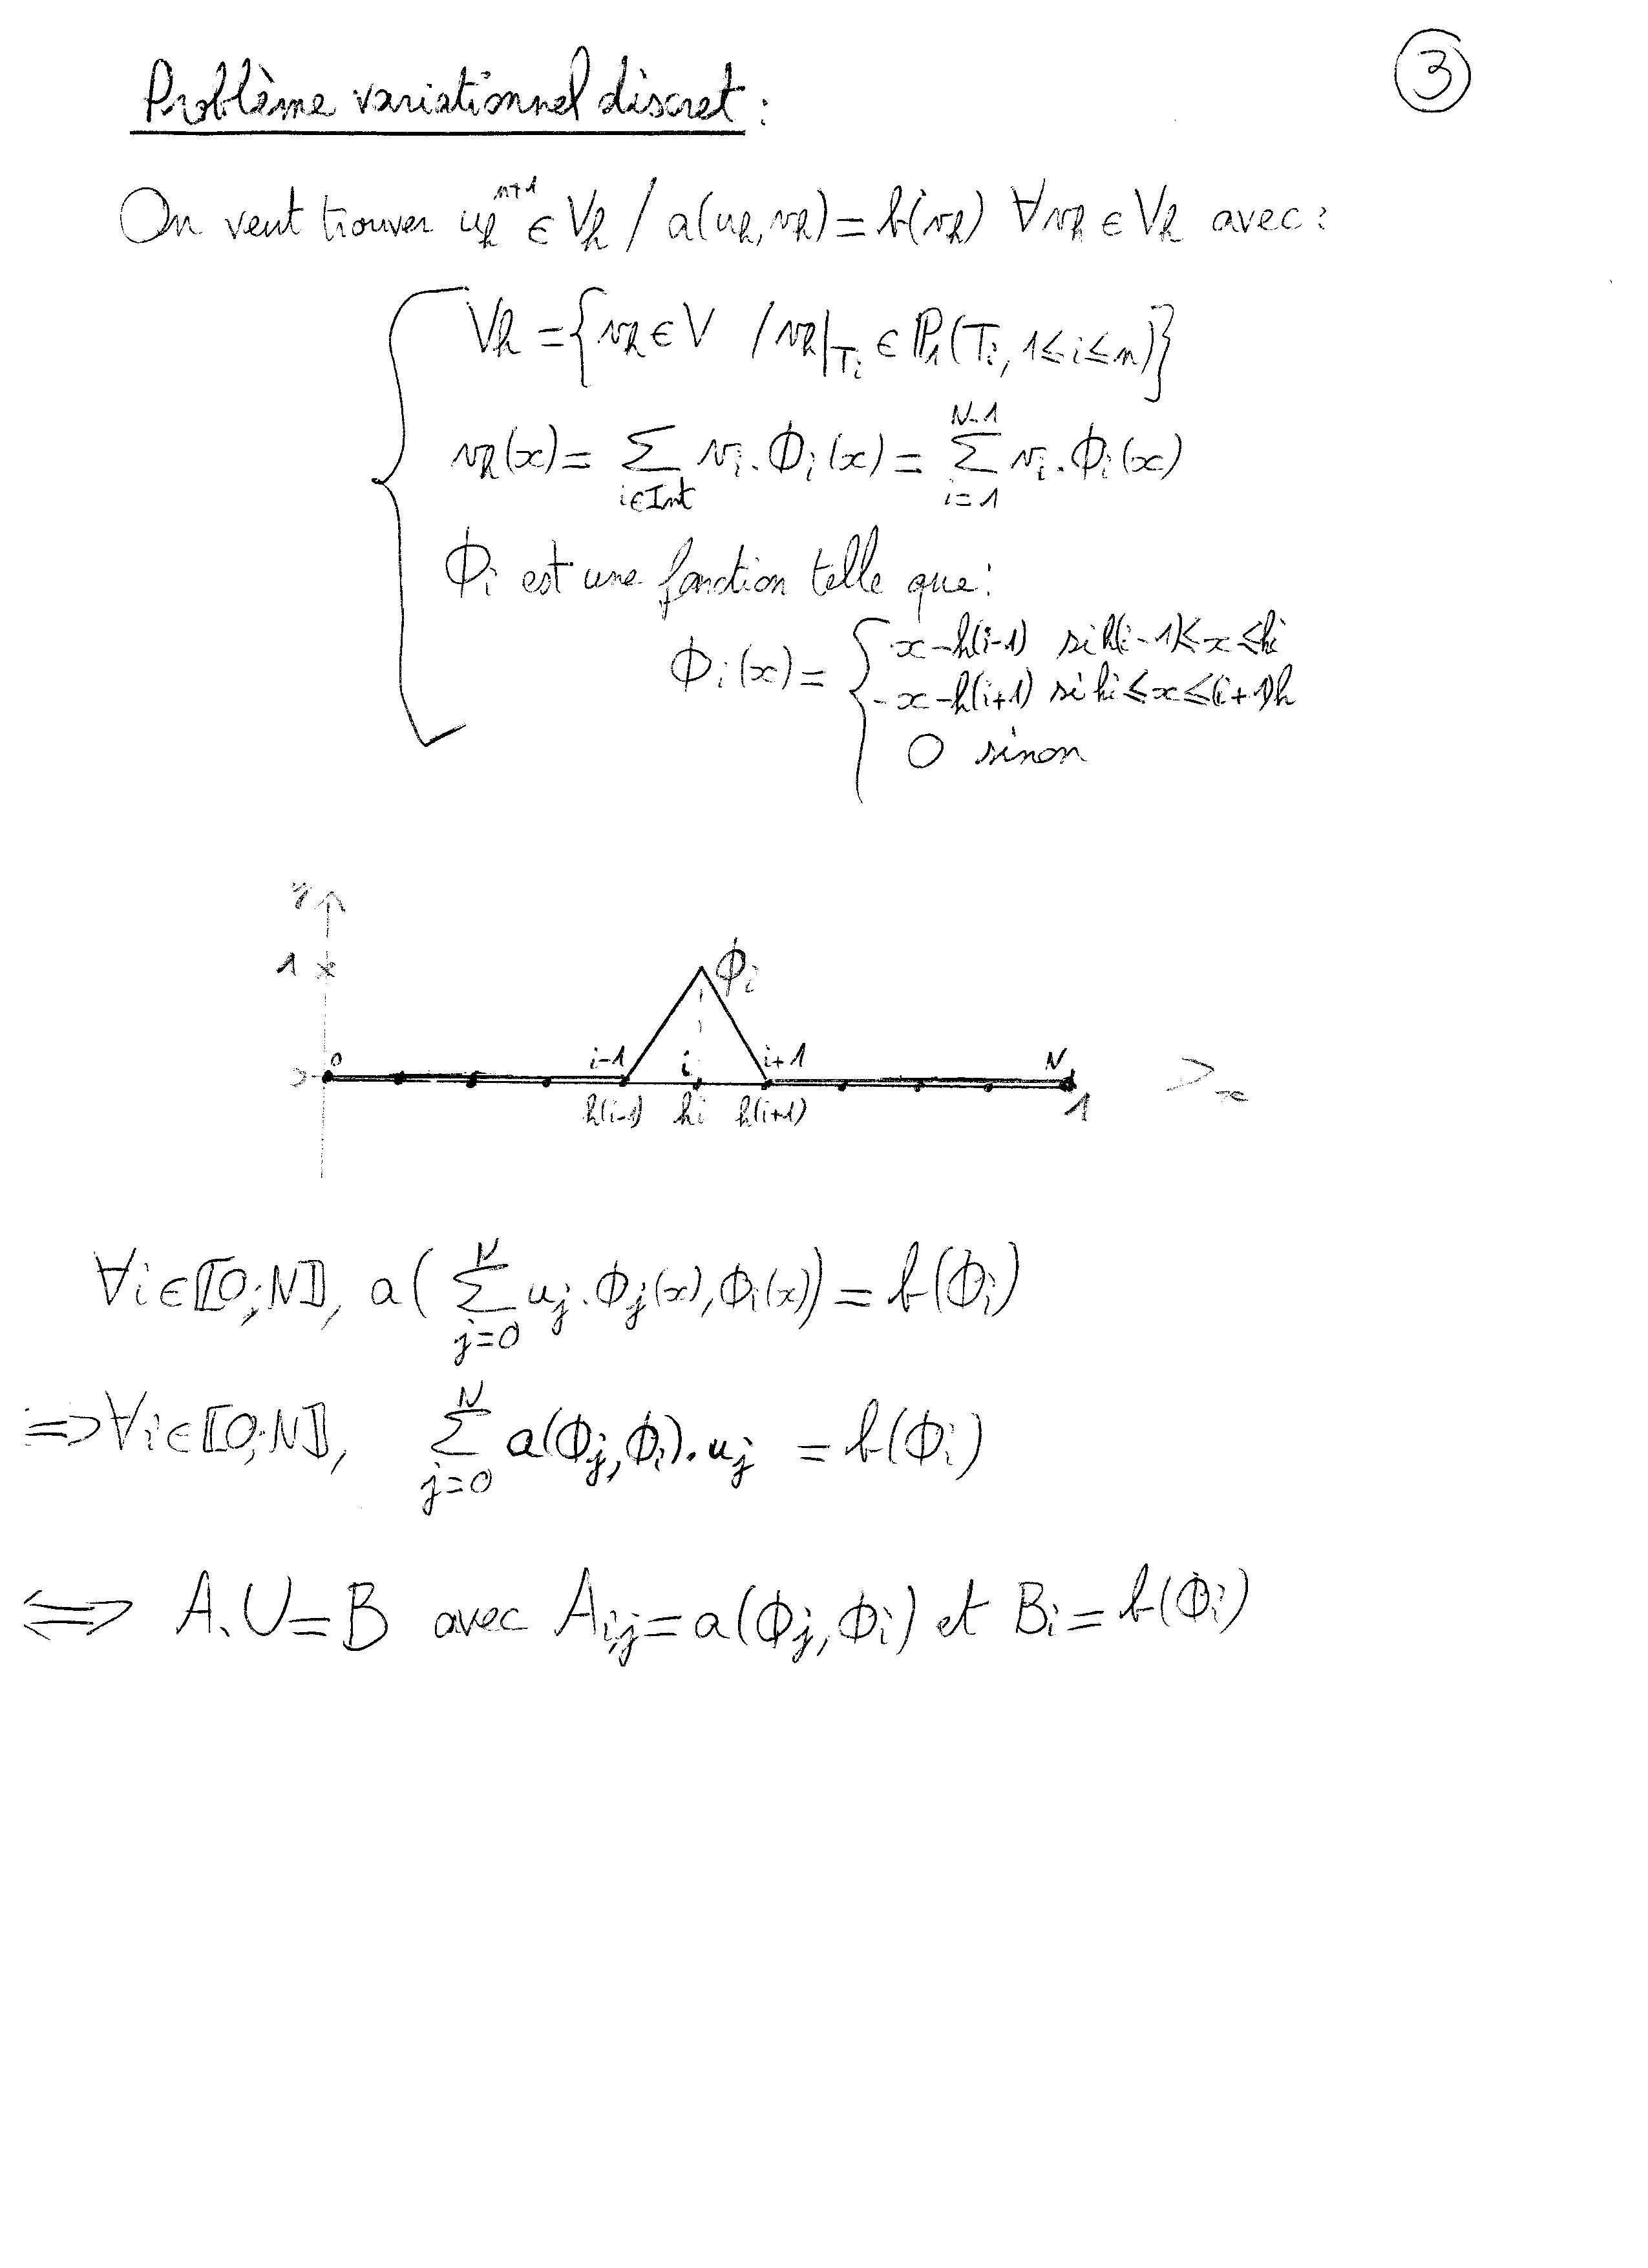 ③
Problème variationnel discret :
On veut trouver uₕⁿ⁺¹ ∈ Vₕ / a(uₕ, vₕ) = b(vₕ) ∀vₕ ∈ Vₕ avec :
Vₕ = {vₕ ∈ V / vₕ|_Tᵢ ∈ ℙ₁(Tᵢ, 1≤i≤n)}
vₕ(x) = ∑_{i∈Int} vᵢ.Φᵢ(x) = ∑_{i=1}^{N-1} vᵢ.Φᵢ(x)
Φᵢ est une fonction telle que :
Φᵢ(x) = { x-h(i-1) si h(i-1)≤x≤hi
-x-h(i+1) si hi≤x≤(i+1)h
0 sinon
y
1 Φᵢ
0 i-1 i i+1 N
h(i-1) hi h(i+1) 1 x
∀i∈⟦0;N⟧, a(∑_{j=0}^{N} uⱼ.Φⱼ(x), Φᵢ(x)) = b(Φᵢ)
⇒ ∀i∈⟦0;N⟧, ∑_{j=0}^{N} a(Φⱼ, Φᵢ).uⱼ = b(Φᵢ)
⟺ A.U = B avec Aᵢ,ⱼ = a(Φⱼ, Φᵢ) et Bᵢ = b(Φᵢ)